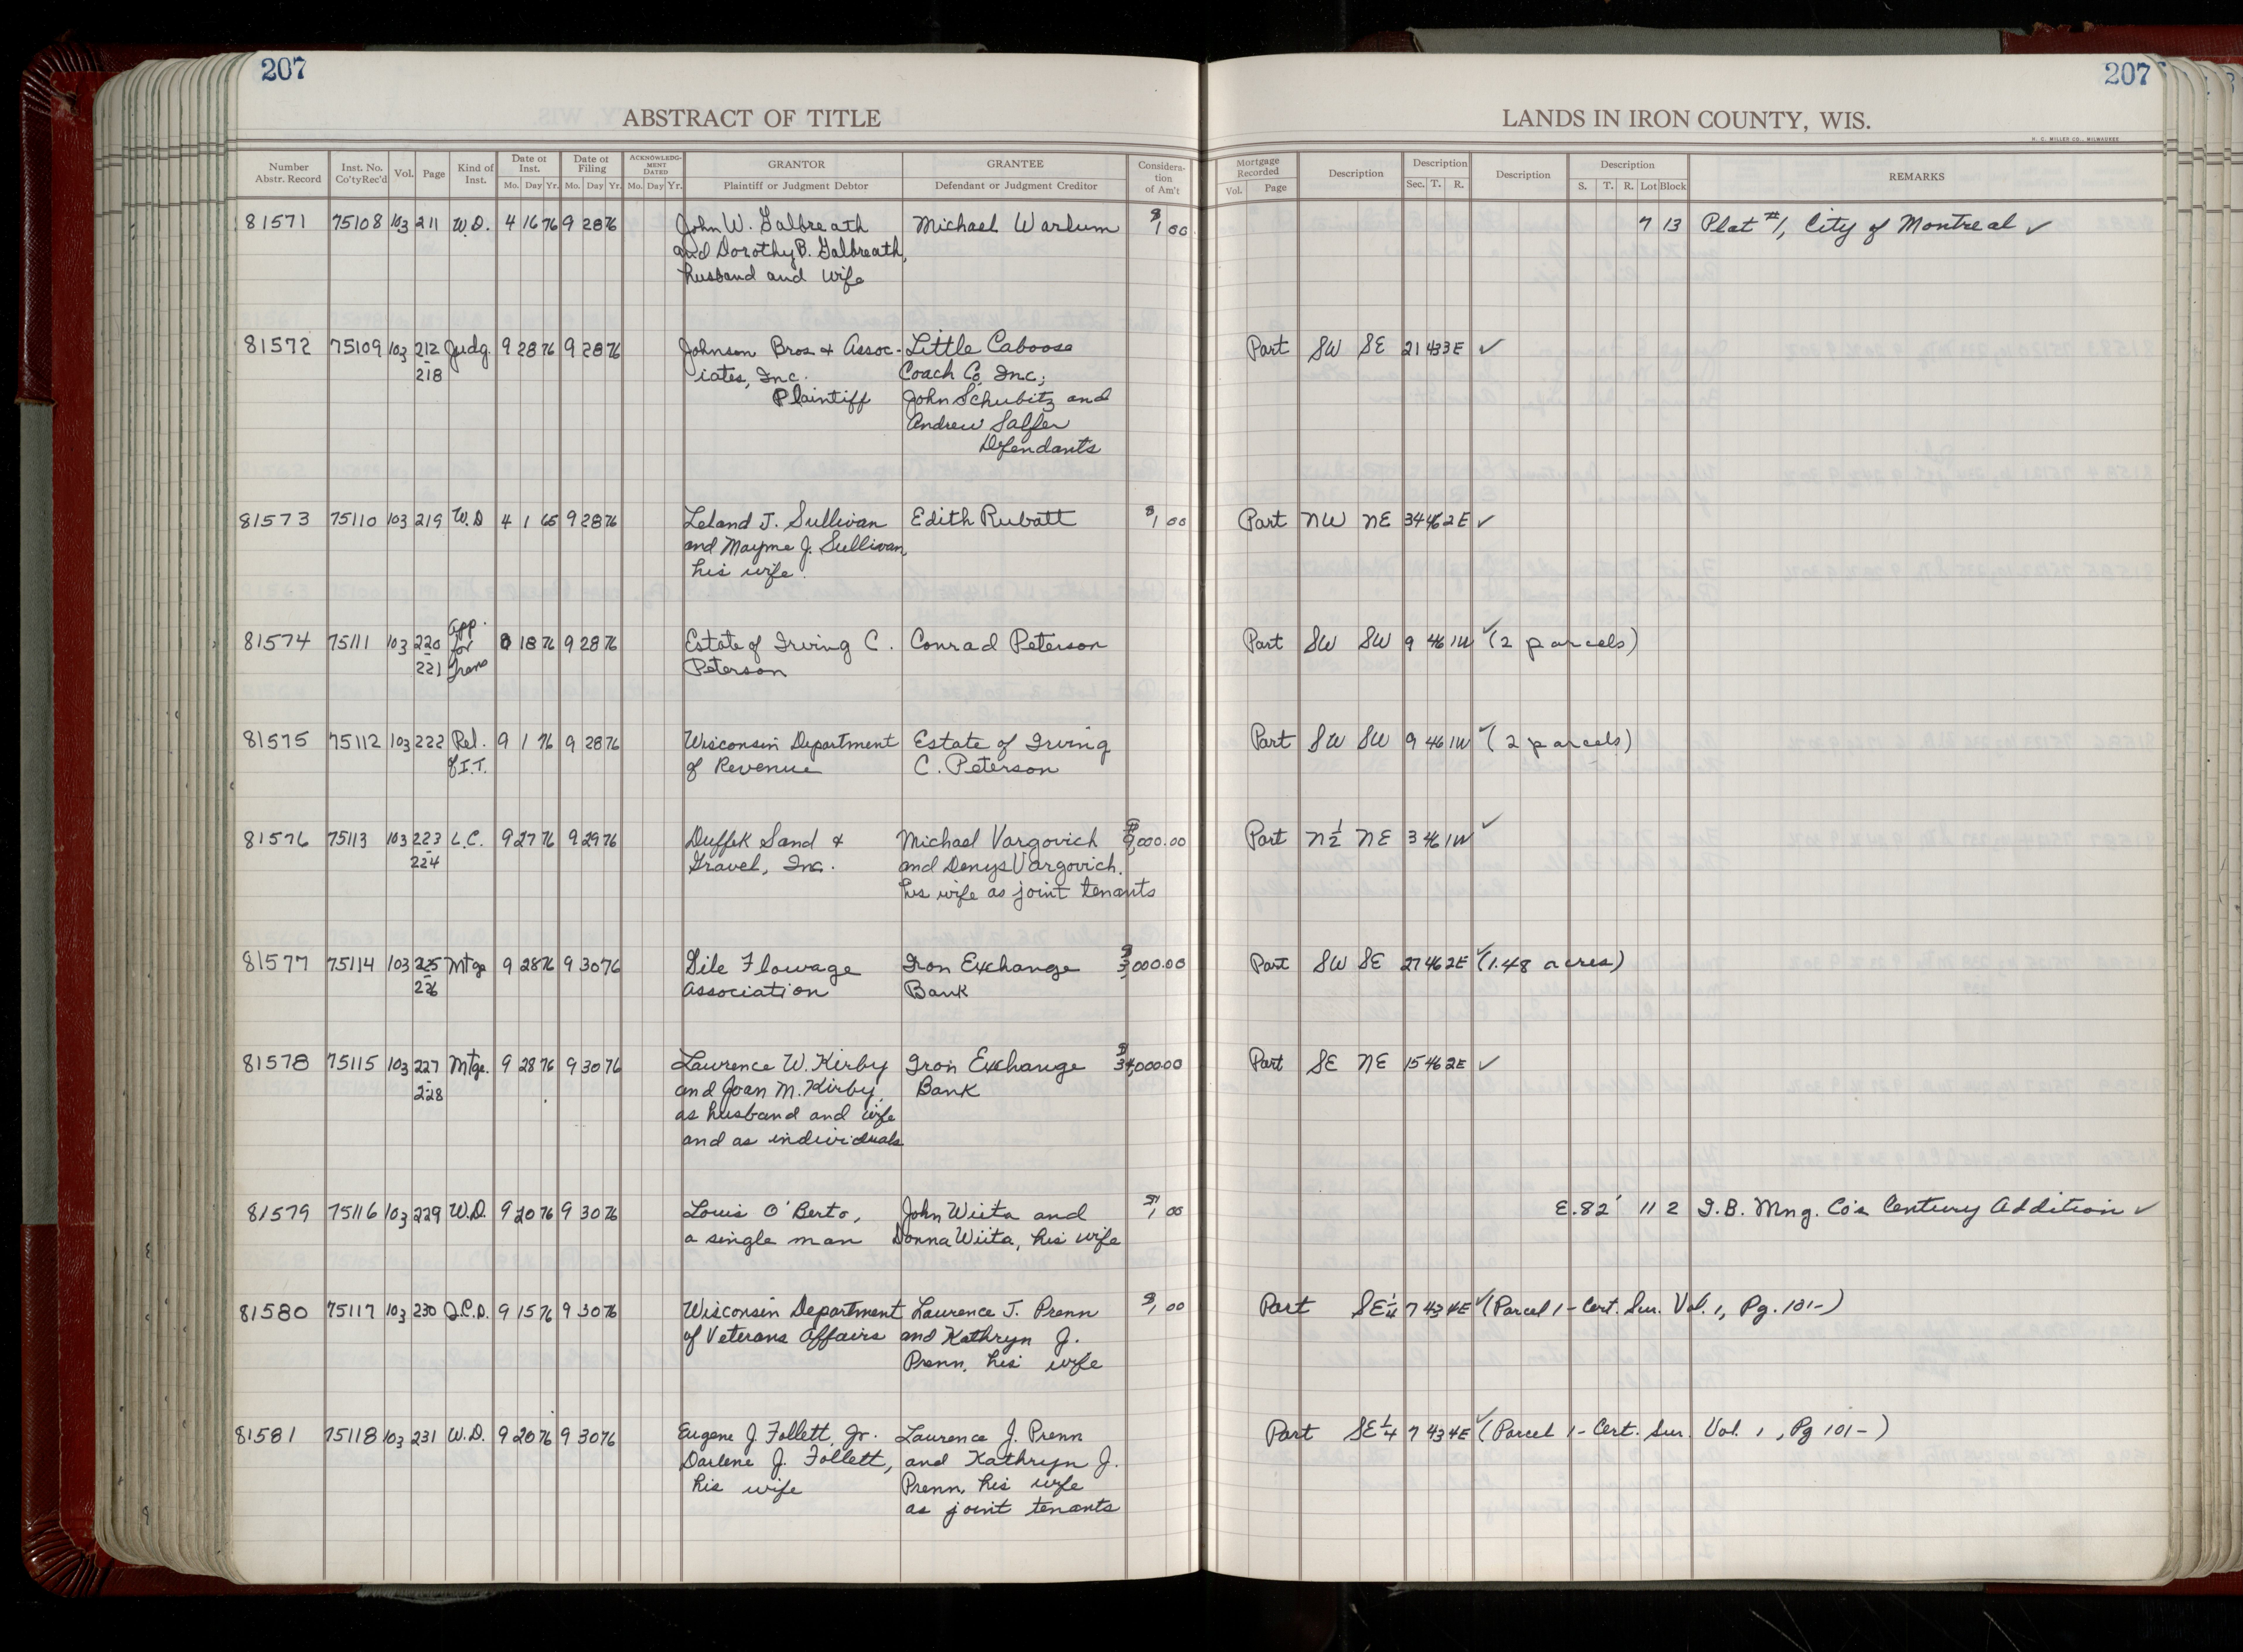 207
207
ABSTRACT OF TITLE
LANDS IN IRON COUNTY, WIS.
H. C. MILLER CO., MILWAUKEE
Number Abstr. Record Inst. No. Co'ty Rec'd Vol. Page Kind of Inst. Date of Inst. Mo. Day Yr. Date of Filing Mo. Day Yr. ACKNOWLEDGMENT DATED Mo. Day Yr. GRANTOR Plaintiff or Judgment Debtor GRANTEE Defendant or Judgment Creditor Consideration of Am't
Mortgage Recorded Vol. Page Description Description Sec. T. R. Description Description S. T. R. Lot Block REMARKS
81571 75108 103 211 W.D. 4 16 76 9 28 76 John W. Galbreath Michael Warlum $1 00 7 13 Plat #1, City of Montreal ✓
and Dorothy B. Galbreath,
husband and wife
81572 75109 103 212 Judg. 9 28 76 9 28 76 Johnson Bros & Assoc- Little Caboose Part SW SE 21 43 3E ✓
-218 iates, Inc. Coach Co, Inc;
Plaintiff John Schubitz and
Andrew Salfer
Defendants
81573 75110 103 219 W.D 4 1 65 9 28 76 Leland J. Sullivan Edith Rubatt $1 00 Part NW NE 34 46 2E ✓
and Mayme J. Sullivan,
his wife.
81574 75111 103 220 App. for Trans 8 18 76 9 28 76 Estate of Irving C. Conrad Peterson Part SW SW 9 46 1W ✓ (2 parcels)
-221 Peterson
81575 75112 103 222 Rel. 9 1 76 9 28 76 Wisconsin Department Estate of Irving Part SW SW 9 46 1W ✓ (2 parcels)
of I.T. of Revenue C. Peterson
81576 75113 103 223 L.C. 9 27 76 9 29 76 Duffek Sand & Michael Vargovich $9,000.00 Part N½ NE 3 46 1W ✓
-224 Gravel, Inc. and Denys Vargovich,
his wife as joint tenants
81577 75114 103 225 Mtge 9 28 76 9 30 76 Gile Flowage Iron Exchange $3,000.00 Part SW SE 27 46 2E ✓ (1.48 acres)
226 Association Bank
81578 75115 103 227 Mtge. 9 28 76 9 30 76 Laurence W. Kirby Iron Exchange $34,000.00 Part SE NE 15 46 2E ✓
-228 and Joan M. Kirby, Bank
as husband and wife
and as individuals
81579 75116 103 229 W.D. 9 20 76 9 30 76 Louis O'Berto, John Wiita and $1 00 E.82' 11 2 I.B. Mng. Co's Century Addition ✓
a single man Donna Wiita, his wife
81580 75117 103 230 Q.C.D. 9 15 76 9 30 76 Wisconsin Department Laurence J. Prenn $1 00 Part SE¼ 7 43 4E ✓ (Parcel 1 - Cert. Sur. Vol. 1, Pg. 101-)
of Veterans Affairs and Kathryn J.
Prenn, his wife
81581 75118 103 231 W.D. 9 20 76 9 30 76 Eugene J. Follett, Jr. Laurence J. Prenn Part SE¼ 7 43 4E ✓ (Parcel 1 - Cert. Sur. Vol. 1, Pg 101-)
Darlene J. Follett, and Kathryn J.
his wife Prenn, his wife
as joint tenants